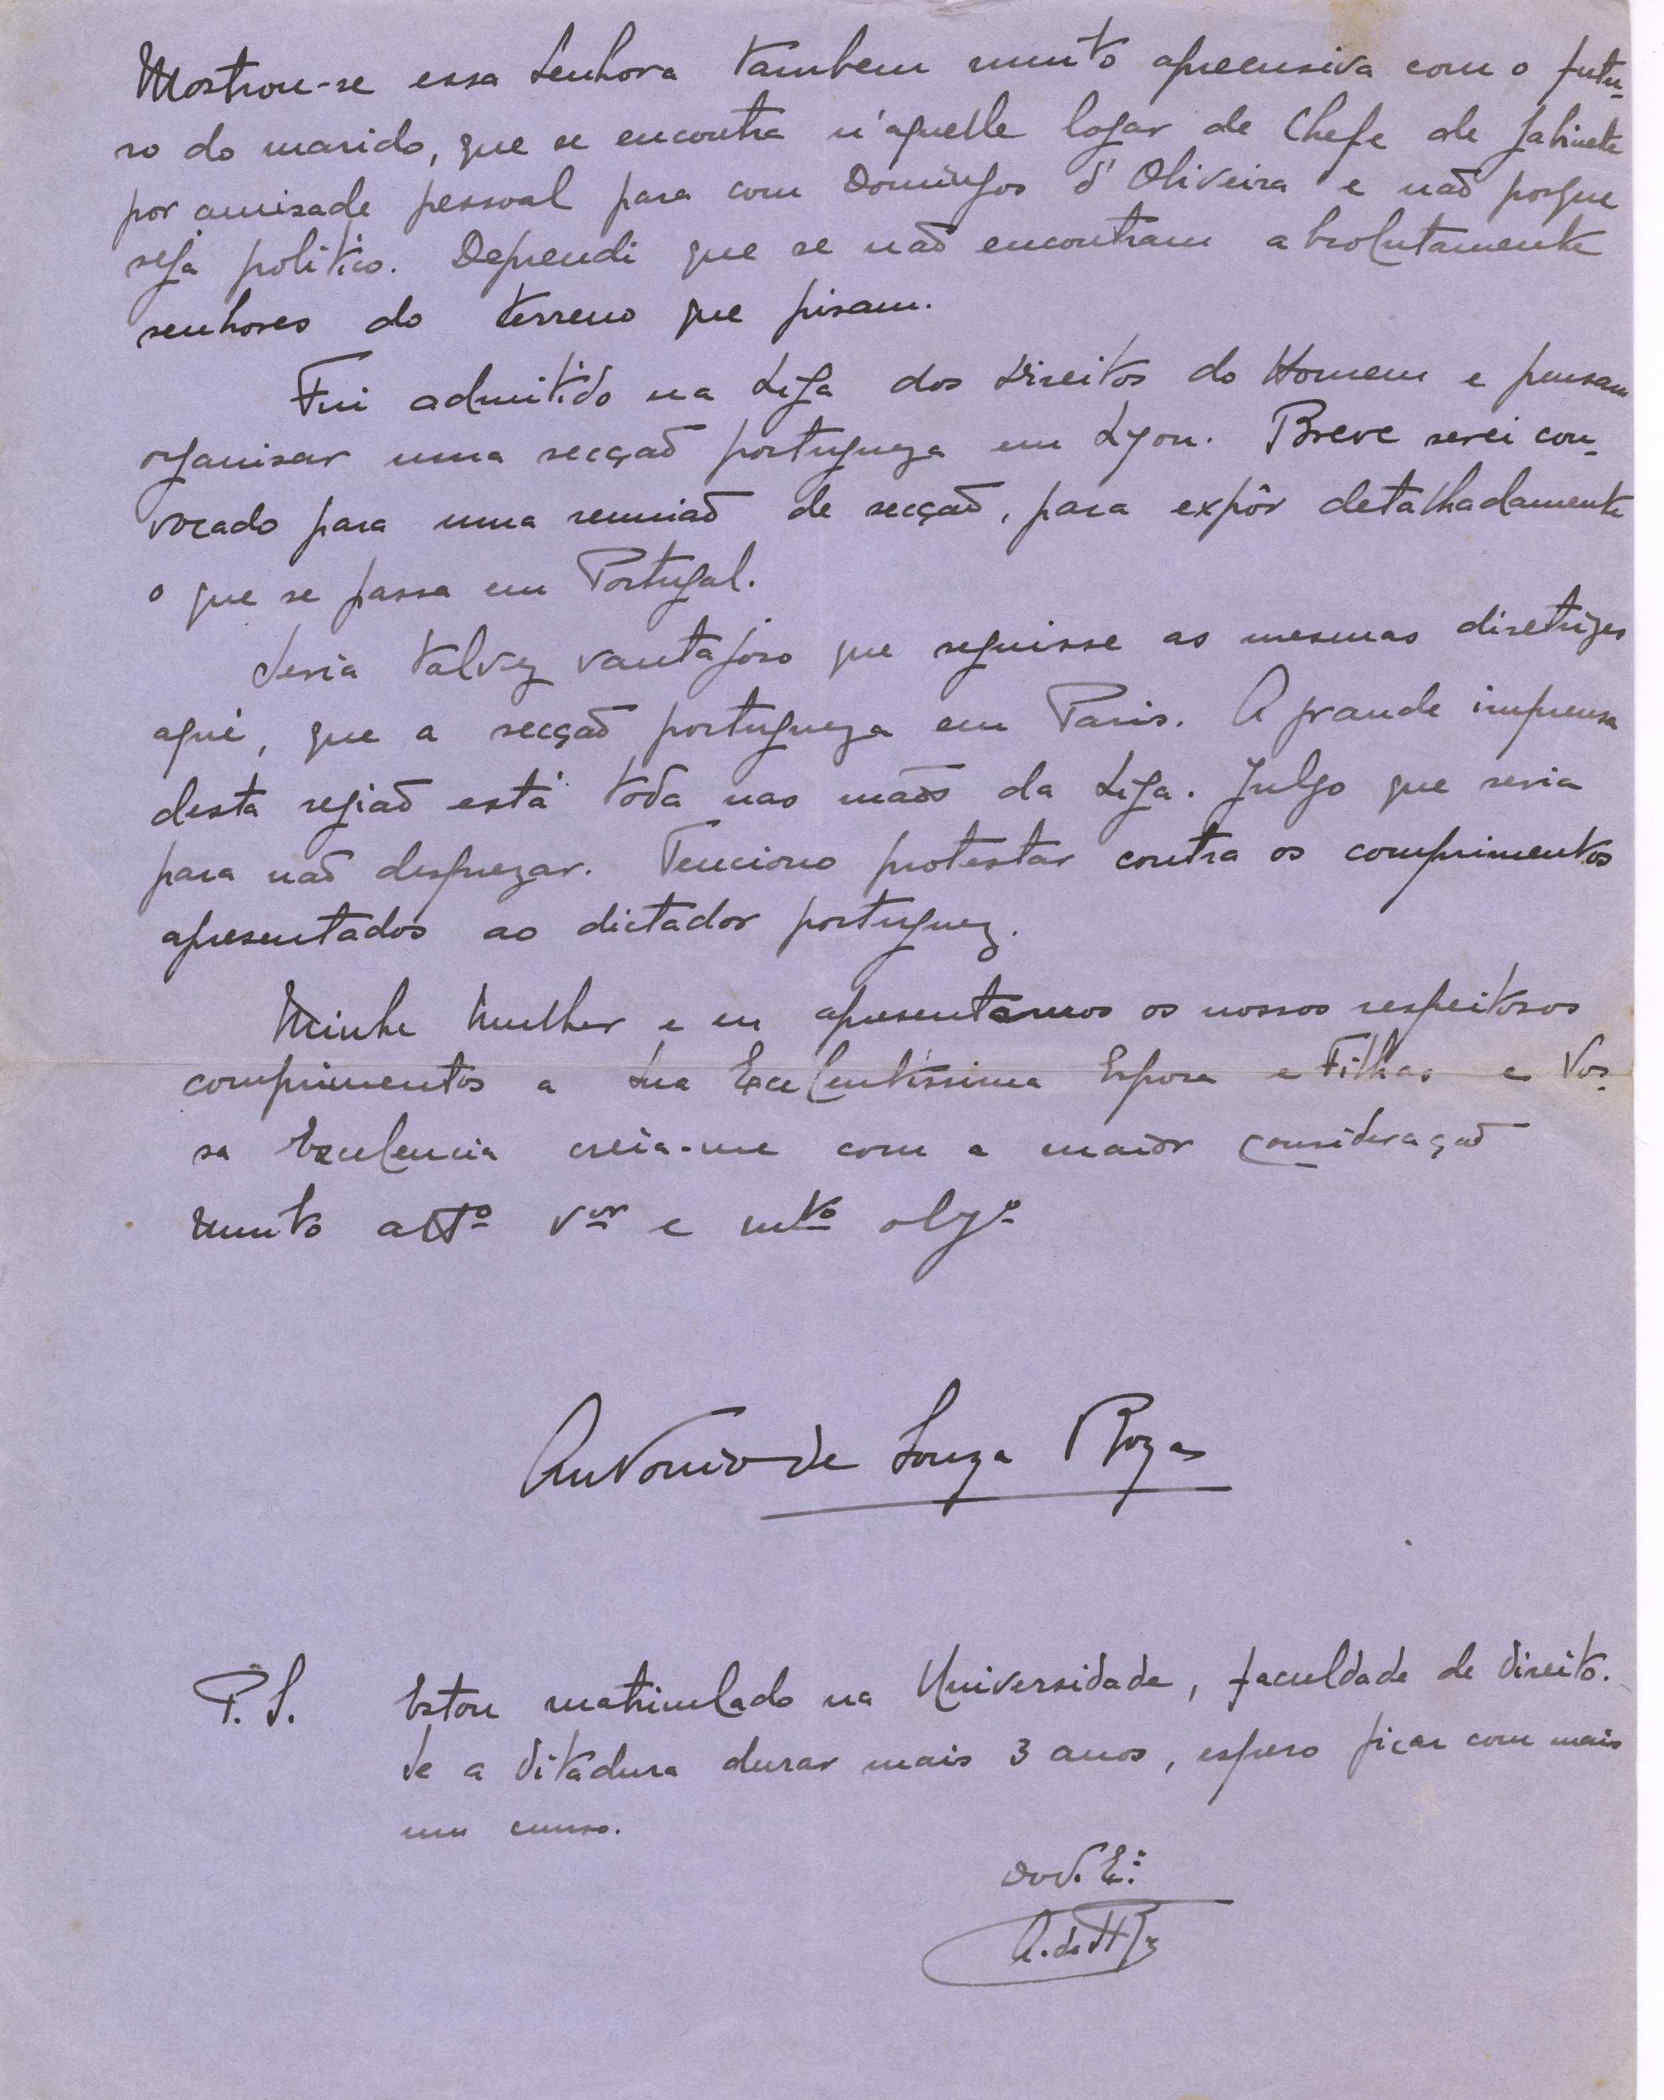 Mostrou-se essa Senhora tambem muito aprecensiva com o futu-
ro do marido, que se encontra n'aquelle logar de Chefe de Gabinete
por amizade pessoal para com Domingos d'Oliveira e não porque
seja politico. Deprendi que se não encontram absolutamente
senhores do terreno que pisam.
Fui admitido na Liga dos Direitos do Homem e pensam
organisar uma secção portugueza em Lyon. Breve serei con-
vocado para uma reunião de secção, para expôr detalhadamente
o que se passa em Portugal.
Seria talvez vantajoso que seguisse as mesmas diretrizes
aqui, que a secção portugueza em Paris. A grande imprensa
desta região está toda nas mãos da Liga. Julgo que seria
para não desprezar. Tenciono protestar contra os comprimentos
apresentados ao dictador portuguez.
Minha Mulher e eu apresentamos os nossos respeitosos
comprimentos a Sua Excelentíssima Esposa e Filhas e Vos-
sa Excelencia creia-me com a maior consideração
Muito attº vor e mto obgº
Antonio de Souza Rozas
P.S. Estou matriculado na Universidade, faculdade de direito.
Se a ditadura durar mais 3 anos, espero ficar com mais
um curso.